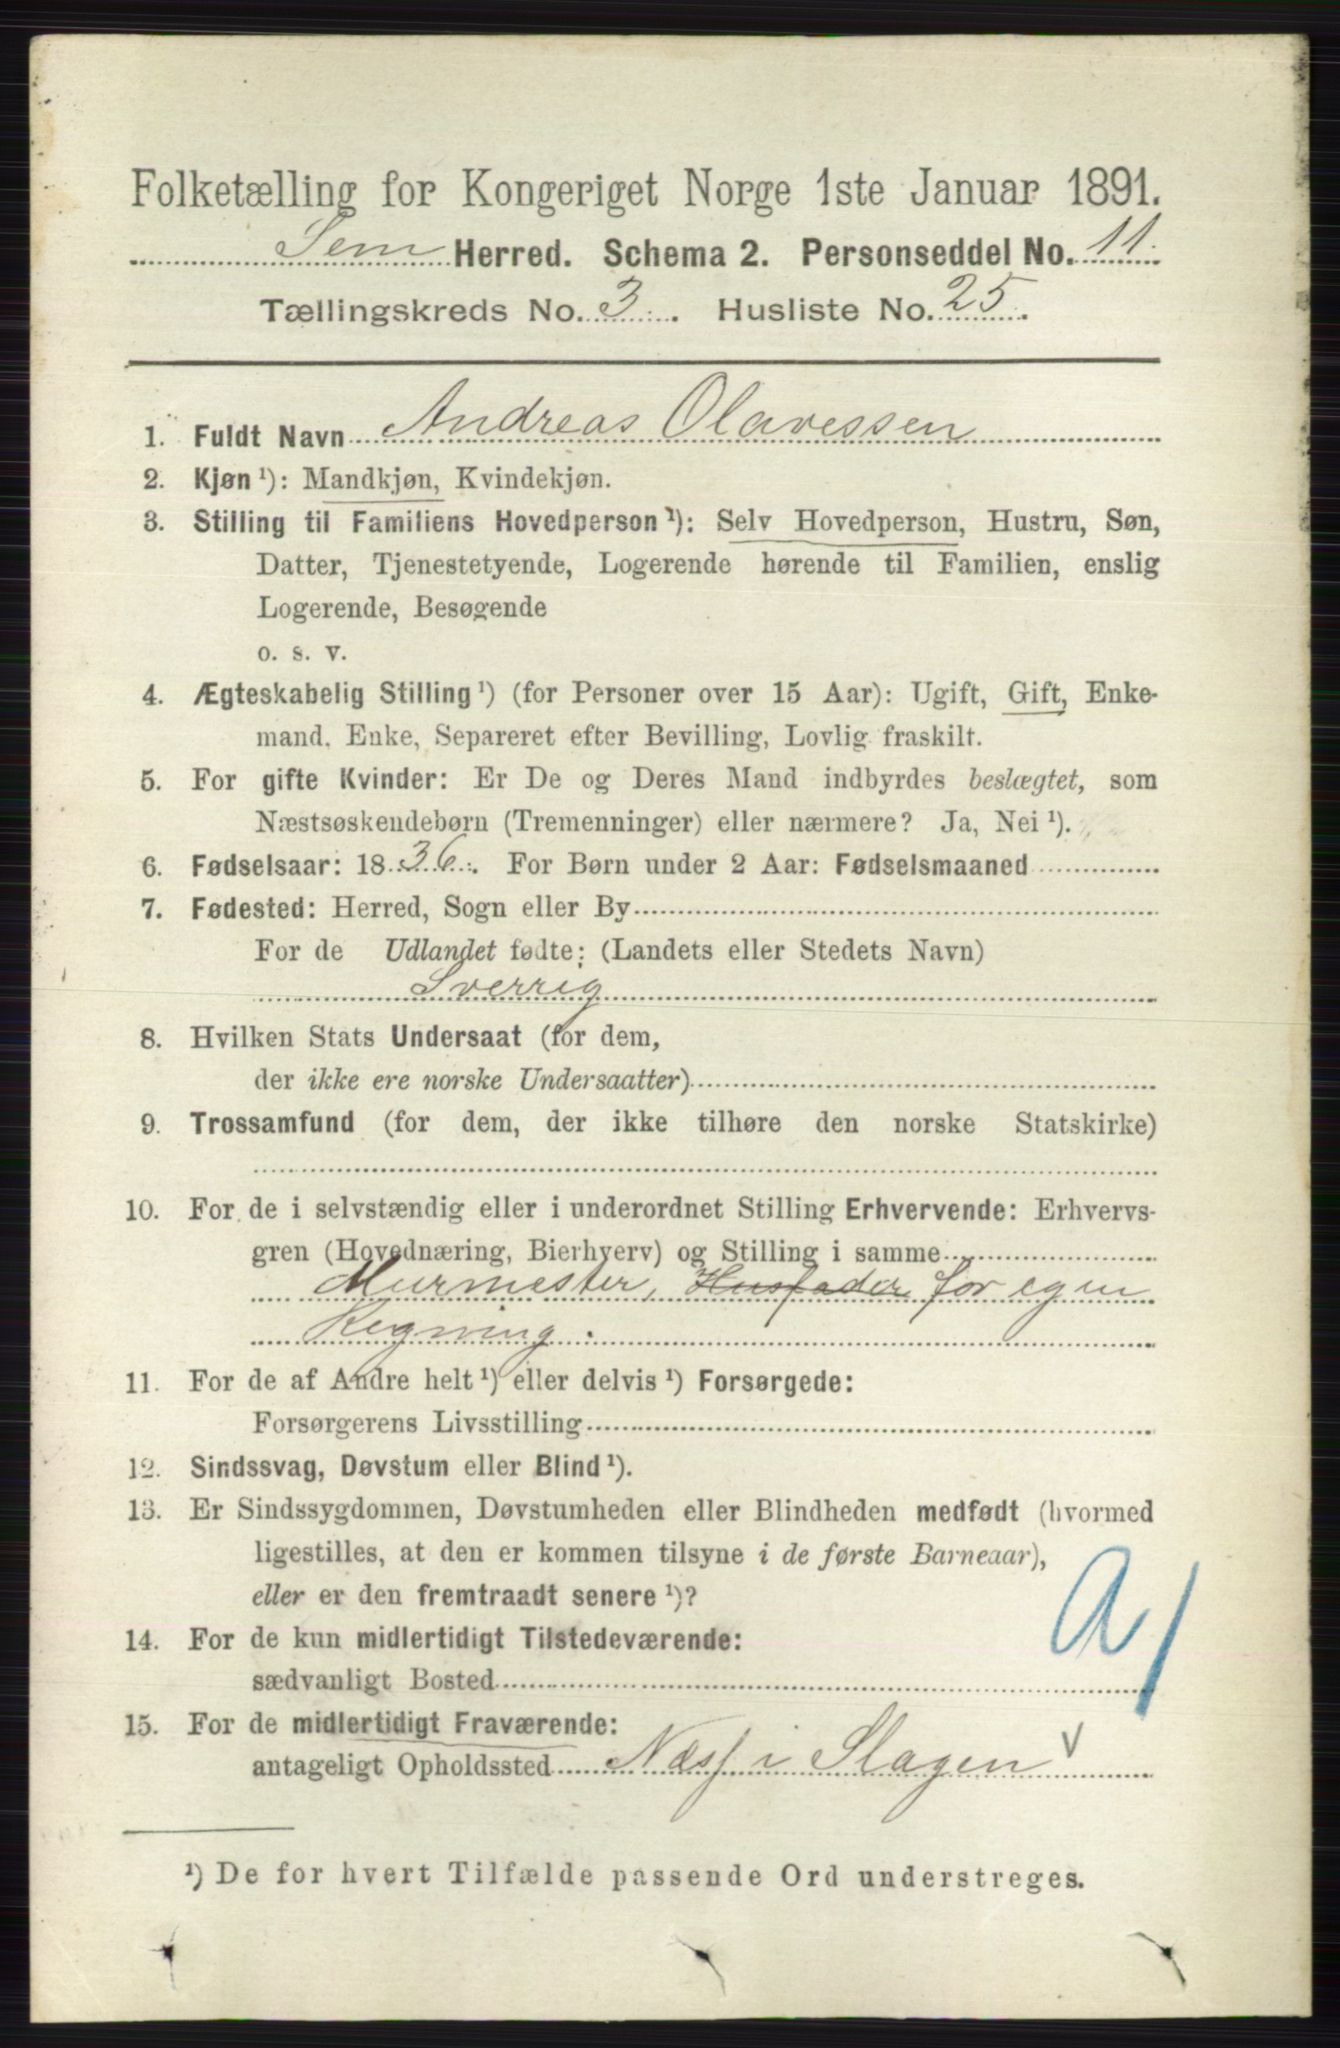 Folketælling for Kongeriget Norge 1ste Januar 1891.
Sem Herred. Schema 2. Personseddel No. 11.
Tællingskreds No. 3. Husliste No. 25.
1. Fuldt Navn Andreas Olavessen
2. Kjøn ¹): Mandkjøn, Kvindekjøn.
3. Stilling til Familiens Hovedperson ¹): Selv Hovedperson, Hustru, Søn,
Datter, Tjenestetyende, Logerende hørende til Familien, enslig
Logerende, Besøgende
o. s. v.
4. Ægteskabelig Stilling ¹) (for Personer over 15 Aar): Ugift, Gift, Enke-
mand, Enke, Separeret efter Bevilling, Lovlig fraskilt.
5. For gifte Kvinder: Er De og Deres Mand indbyrdes beslægtet, som
Næstsøskendebørn (Tremenninger) eller nærmere? Ja, Nei ¹).
6. Fødselsaar: 1836. For Børn under 2 Aar: Fødselsmaaned
7. Fødested: Herred, Sogn eller By
For de Udlandet fødte: (Landets eller Stedets Navn)
Sverrig
8. Hvilken Stats Undersaat (for dem,
der ikke ere norske Undersaatter)
9. Trossamfund (for dem, der ikke tilhøre den norske Statskirke)
10. For de i selvstændig eller i underordnet Stilling Erhvervende: Erhvervs-
gren (Hovednæring, Bierhverv) og Stilling i samme
Murmester, Husfader for egen
Regning.
11. For de af Andre helt ¹) eller delvis ¹) Forsørgede:
Forsørgerens Livsstilling
12. Sindssvag, Døvstum eller Blind ¹).
13. Er Sindssygdommen, Døvstumheden eller Blindheden medfødt (hvormed
ligestilles, at den er kommen tilsyne i de første Barneaar),
eller er den fremtraadt senere ¹)?
14. For de kun midlertidigt Tilstedeværende:
sædvanligt Bosted
15. For de midlertidigt Fraværende:
antageligt Opholdssted Næss i Slagen
¹) De for hvert Tilfælde passende Ord understreges.